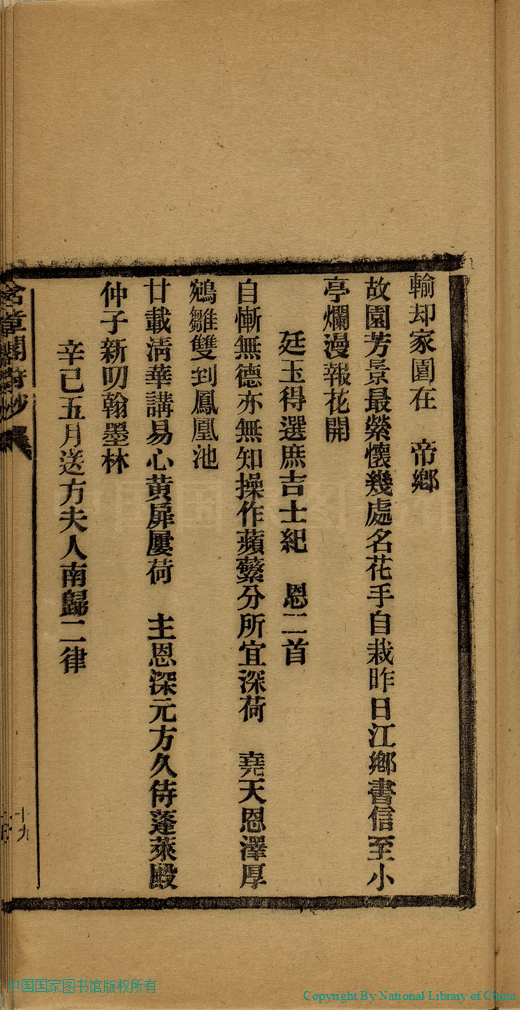 輸却家園在　帝鄉
故園芳景最縈懷幾處名花手自栽昨日江鄉書信至小
亭爛漫報花開
廷玉得選庶吉士紀　恩二首
自慚無德亦無知操作蘋蘩分所宜深荷　堯天恩澤厚
鵷雛雙到鳳凰池
廿載清華講易心黃扉屢荷　主恩深元方久侍蓬萊殿
仲子新叨翰墨林
辛巳五月送方夫人南歸二律
含章閣詩鈔
十九
中国国家图书馆版权所有
Copyright By National Library of China